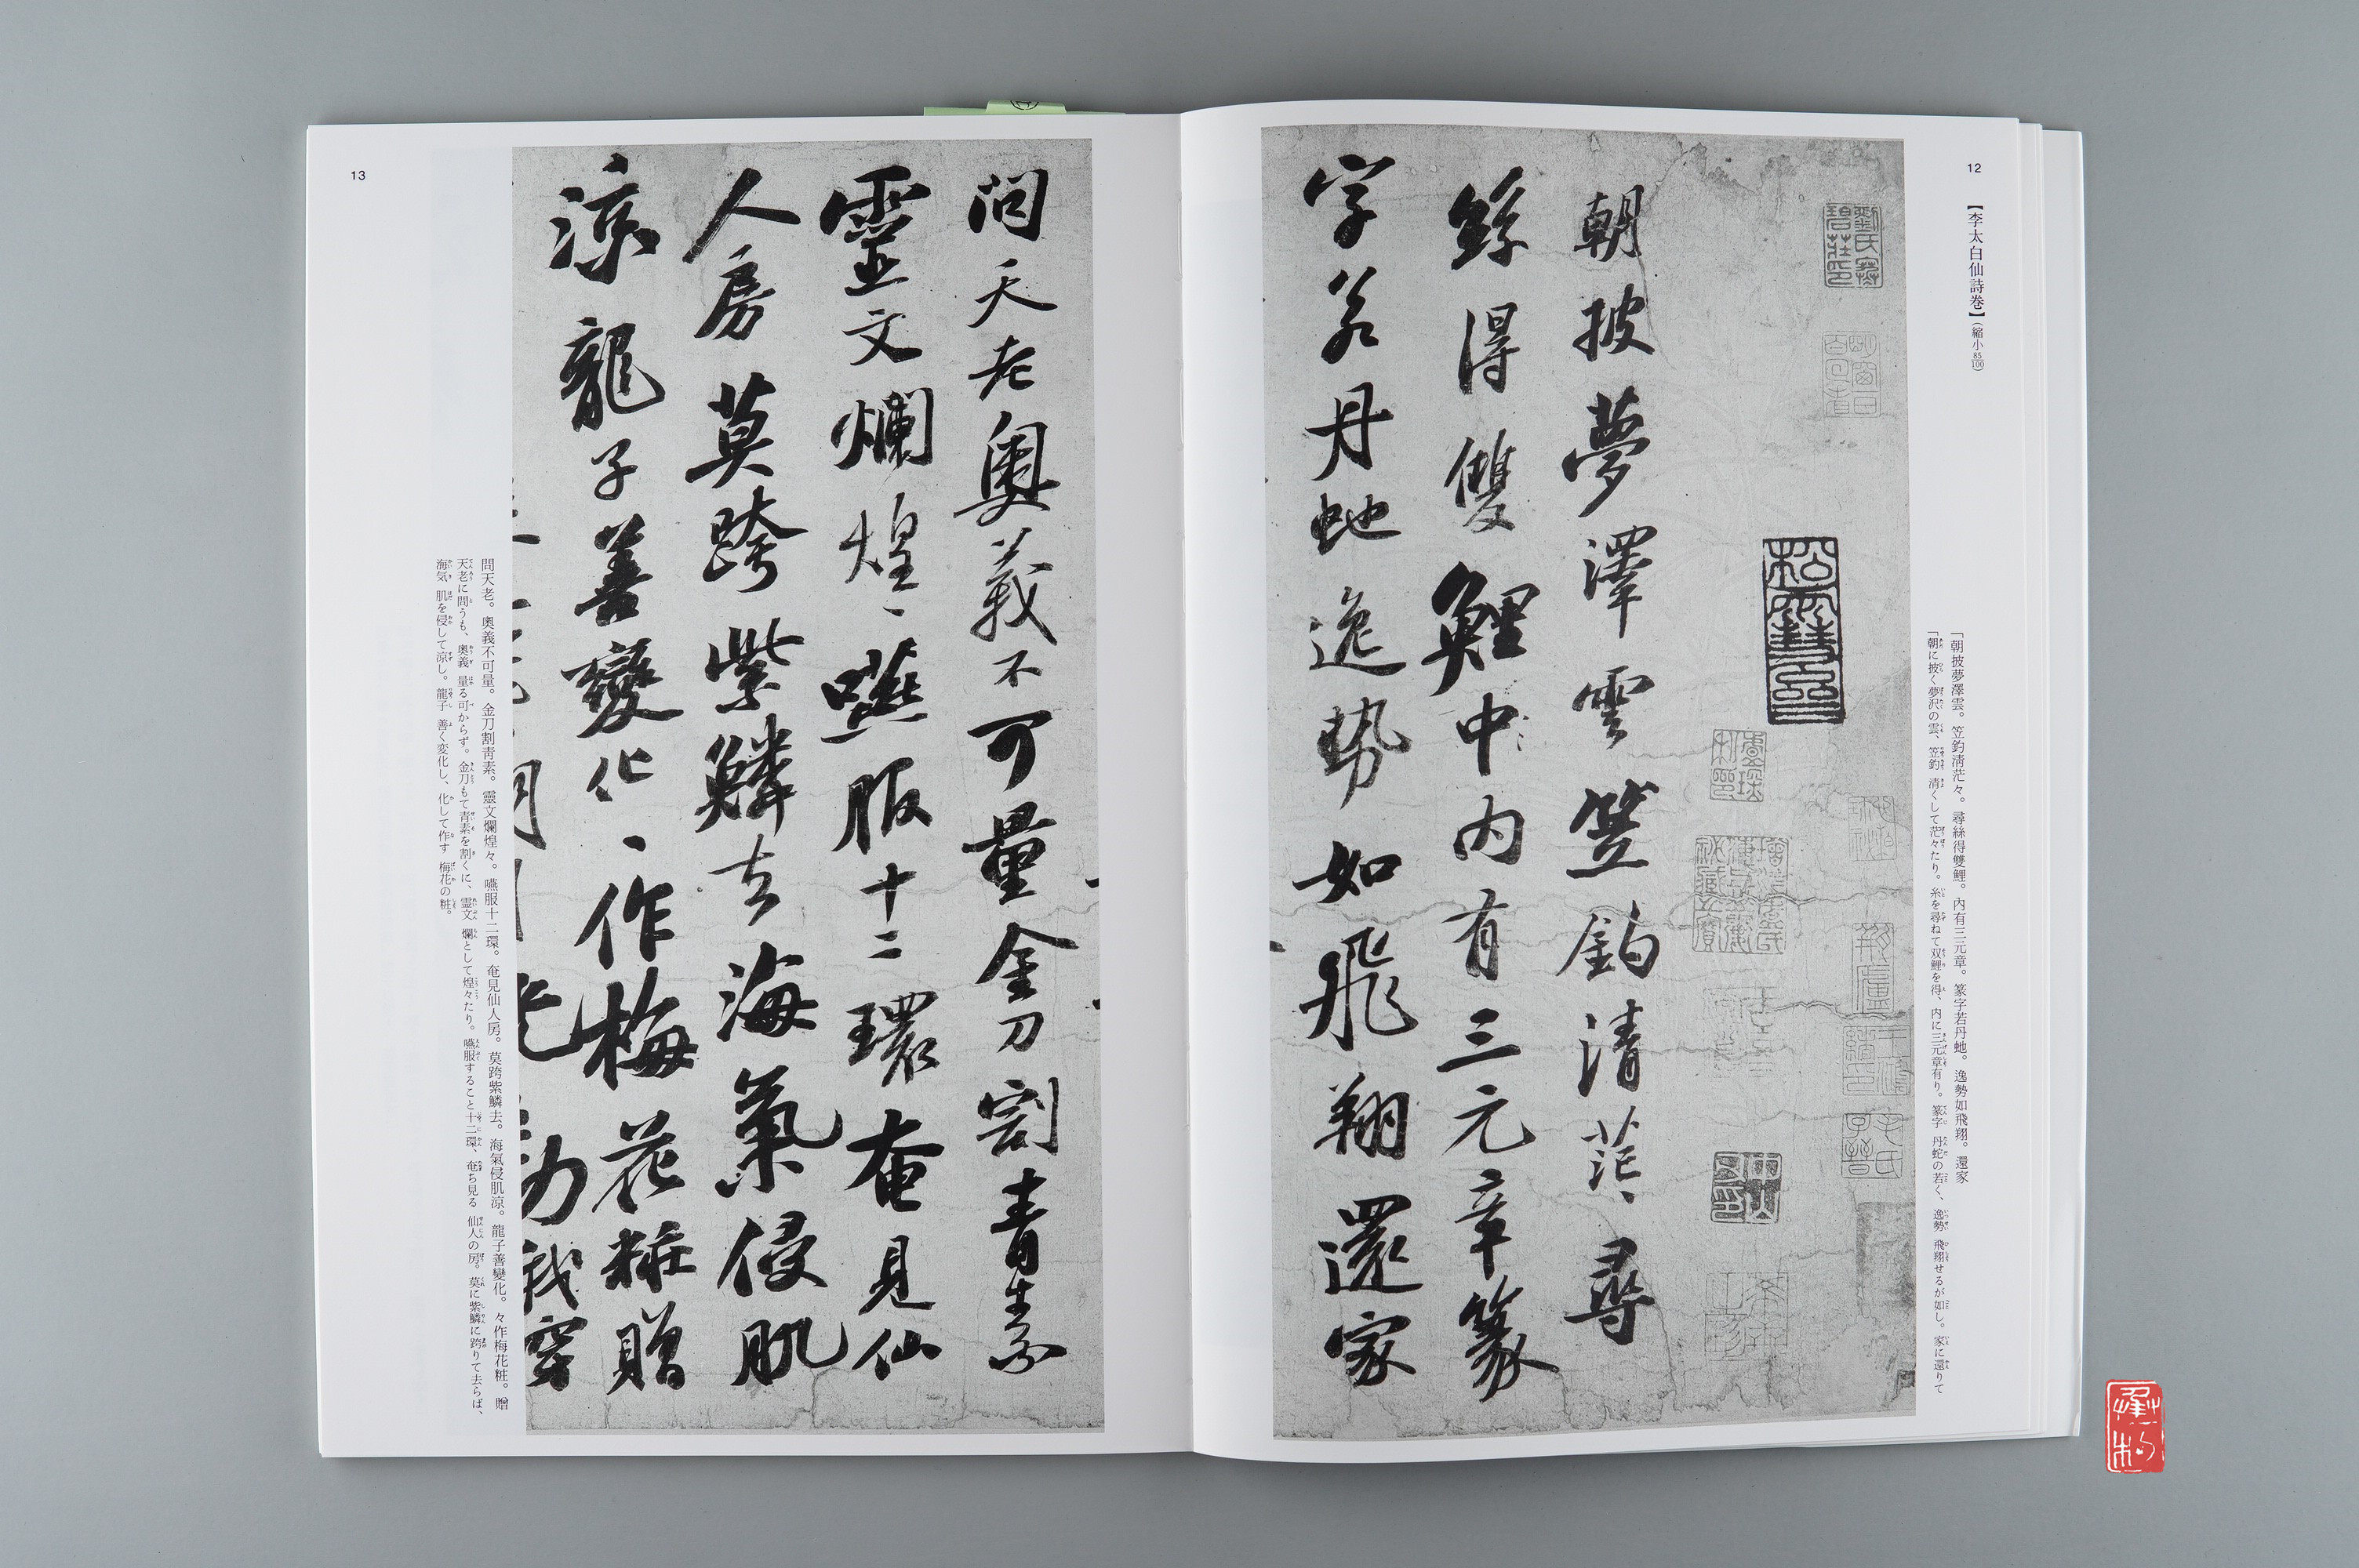 12
【李太白仙詩巻】(縮小85/100)
「朝披夢澤雲。笠釣淸茫々。尋絲得雙鯉。內有三元章。篆字若丹虵。逸勢如飛翔。還家
「朝に披く夢沢の雲、笠釣 清くして茫々たり。糸を尋ねて双鯉を得、内に三元章有り。篆字 丹蛇の若く、逸勢 飛翔せるが如し。家に還りて
朝披夢澤雲笠釣清茫、尋
絲得雙鯉中內有三元章篆
字若丹虵逸勢如飛翔還家
問天老奧義不可量金刀割青素
靈文爛煌、嚥服十二環奄見仙
人房莫跨紫鱗去海氣侵肌
涼龍子善變化、作梅花粧贈
問天老。奧義不可量。金刀割靑素。靈文爛煌々。嚥服十二環。奄見仙人房。莫跨紫鱗去。海氣侵肌涼。龍子善變化。々作梅花粧。贈
天老に問うも、奥義 量る可からず。金刀もて青素を割くに、霊文 爛として煌々たり。嚥服すること十二環、奄ち見る 仙人の房。莫に紫鱗に跨りて去らば、
海気 肌を侵して涼し。龍子 善く変化し、化して作す 梅花の粧。
13